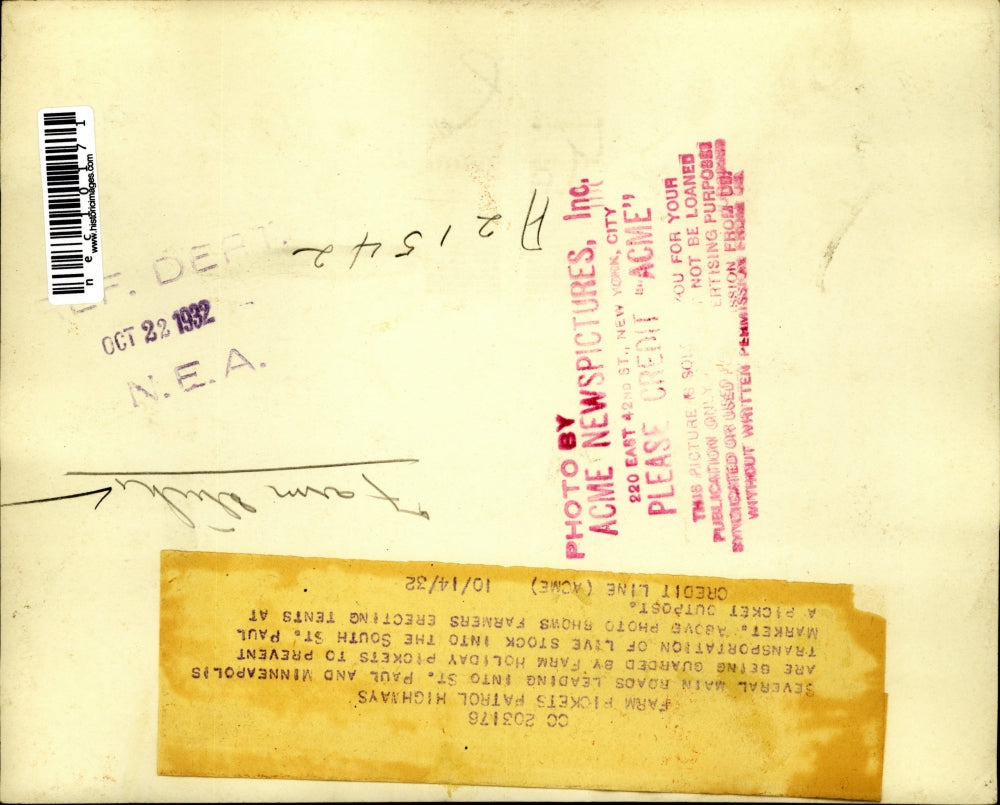 nec10171
www.historicimages.com
EF. DEPT.
OCT 22 1932
N.E.A.
A21542
PHOTO BY
ACME NEWSPICTURES, Inc.
220 EAST 42ND ST., NEW YORK, CITY
PLEASE CREDIT "ACME"
THIS PICTURE IS SOL YOU FOR YOUR
PUBLICATION ONLY NOT BE LOANED
SYNDICATED OR USED ERTISING PURPOSES
WITHOUT WRITTEN PERMISSION FROM US
Farm Strike
CO 203176
FARM PICKETS PATROL HIGHWAYS
SEVERAL MAIN ROADS LEADING INTO ST. PAUL AND MINNEAPOLIS
ARE BEING GUARDED BY FARM HOLIDAY PICKETS TO PREVENT
TRANSPORTATION OF LIVE STOCK INTO THE SOUTH ST. PAUL
MARKET. ABOVE PHOTO SHOWS FARMERS ERECTING TENTS AT
A PICKET OUTPOST.
CREDIT LINE (ACME) 10/14/32